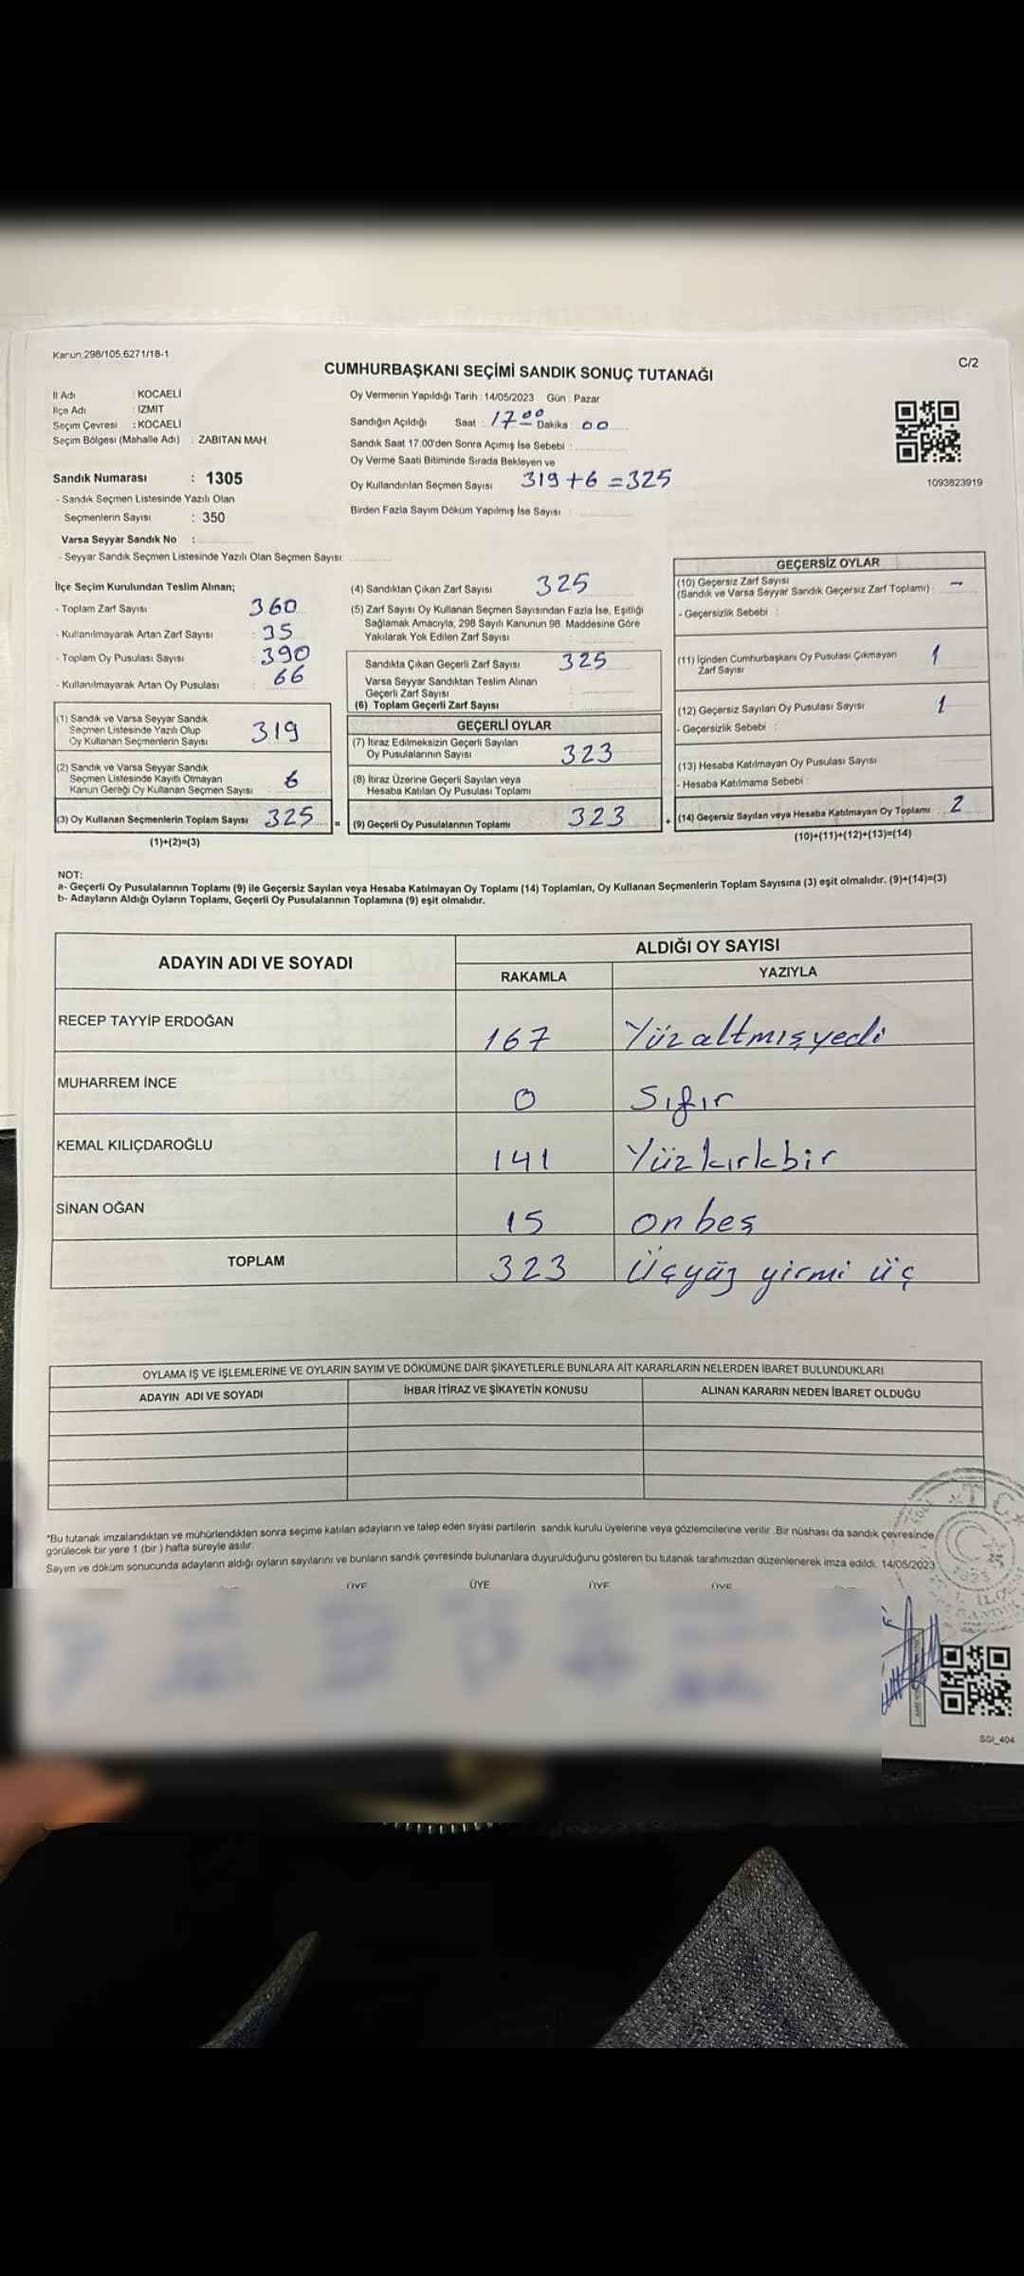 Kanun 298/105,6271/18-1
C/2
CUMHURBAŞKANI SEÇİMİ SANDIK SONUÇ TUTANAĞI
İl Adı : KOCAELİ
İlçe Adı : İZMİT
Seçim Çevresi : KOCAELİ
Seçim Bölgesi (Mahalle Adı) : ZABITAN MAH.
Sandık Numarası : 1305
- Sandık Seçmen Listesinde Yazılı Olan
Seçmenlerin Sayısı : 350
Varsa Seyyar Sandık No :
- Seyyar Sandık Seçmen Listesinde Yazılı Olan Seçmen Sayısı:
Oy Vermenin Yapıldığı Tarih : 14/05/2023 Gün : Pazar
Sandığın Açıldığı Saat : 17 00 Dakika : 00
Sandık Saat 17.00'den Sonra Açımış İse Sebebi :
Oy Verme Saati Bitiminde Sırada Bekleyen ve
Oy Kullandırılan Seçmen Sayısı 319 + 6 = 325
Birden Fazla Sayım Döküm Yapılmış İse Sayısı :
1093823919
İlçe Seçim Kurulundan Teslim Alınan;
- Toplam Zarf Sayısı 360
- Kullanılmayarak Artan Zarf Sayısı : 35
- Toplam Oy Pusulası Sayısı : 390
- Kullanılmayarak Artan Oy Pusulası : 66
(1) Sandık ve Varsa Seyyar Sandık
Seçmen Listesinde Yazılı Olup
Oy Kullanan Seçmenlerin Sayısı 319
(2) Sandık ve Varsa Seyyar Sandık
Seçmen Listesinde Kayıtlı Olmayan
Kanun Gereği Oy Kullanan Seçmen Sayısı 6
(3) Oy Kullanan Seçmenlerin Toplam Sayısı 325 =
(1)+(2)=(3)
(4) Sandıktan Çıkan Zarf Sayısı 325
(5) Zarf Sayısı Oy Kullanan Seçmen Sayısından Fazla İse, Eşitliği
Sağlamak Amacıyla, 298 Sayılı Kanunun 98. Maddesine Göre
Yakılarak Yok Edilen Zarf Sayısı
Sandıkta Çıkan Geçerli Zarf Sayısı 325
Varsa Seyyar Sandıktan Teslim Alınan
Geçerli Zarf Sayısı
(6) Toplam Geçerli Zarf Sayısı
GEÇERLİ OYLAR
(7) İtiraz Edilmeksizin Geçerli Sayılan
Oy Pusulalarının Sayısı 323
(8) İtiraz Üzerine Geçerli Sayılan veya
Hesaba Katılan Oy Pusulası Toplamı
(9) Geçerli Oy Pusulalarının Toplamı 323 +
GEÇERSİZ OYLAR
(10) Geçersiz Zarf Sayısı
(Sandık ve Varsa Seyyar Sandık Geçersiz Zarf Toplamı) : -
- Geçersizlik Sebebi :
(11) İçinden Cumhurbaşkanı Oy Pusulası Çıkmayan
Zarf Sayısı 1
(12) Geçersiz Sayılan Oy Pusulası Sayısı 1
- Geçersizlik Sebebi :
(13) Hesaba Katılmayan Oy Pusulası Sayısı
- Hesaba Katılmama Sebebi :
(14) Geçersiz Sayılan veya Hesaba Katılmayan Oy Toplamı 2
(10)+(11)+(12)+(13)=(14)
NOT:
a- Geçerli Oy Pusulalarının Toplamı (9) ile Geçersiz Sayılan veya Hesaba Katılmayan Oy Toplamı (14) Toplamları, Oy Kullanan Seçmenlerin Toplam Sayısına (3) eşit olmalıdır. (9)+(14)=(3)
b- Adayların Aldığı Oyların Toplamı, Geçerli Oy Pusulalarının Toplamına (9) eşit olmalıdır.
ADAYIN ADI VE SOYADI
ALDIĞI OY SAYISI
RAKAMLA YAZIYLA
RECEP TAYYİP ERDOĞAN 167 Yüzaltmışyedi
MUHARREM İNCE 0 Sıfır
KEMAL KILIÇDAROĞLU 141 Yüzkırkbir
SİNAN OĞAN 15 onbeş
TOPLAM 323 Üçyüz yirmi üç
OYLAMA İŞ VE İŞLEMLERİNE VE OYLARIN SAYIM VE DÖKÜMÜNE DAİR ŞİKAYETLERLE BUNLARA AİT KARARLARIN NELERDEN İBARET BULUNDUKLARI
ADAYIN ADI VE SOYADI İHBAR İTİRAZ VE ŞİKAYETİN KONUSU ALINAN KARARIN NEDEN İBARET OLDUĞU
*Bu tutanak imzalandıktan ve mühürlendikten sonra seçime katılan adayların ve talep eden siyasi partilerin sandık kurulu üyelerine veya gözlemcilerine verilir. Bir nüshası da sandık çevresinde
görülecek bir yere 1 (bir ) hafta süreyle asılır.
Sayım ve döküm sonucunda adayların aldığı oyların sayılarını ve bunların sandık çevresinde bulunanlara duyurulduğunu gösteren bu tutanak tarafımızdan düzenlenerek imza edildi. 14/05/2023
ÜYE ÜYE ÜYE ÜYE
T.C.
SSI_404